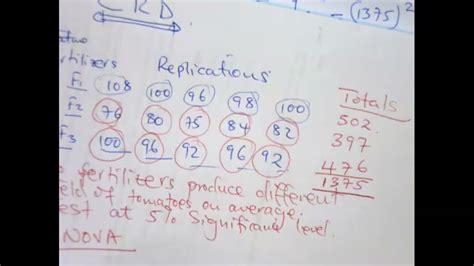 CRD
= (1375)²
Fertilizers Replications
F1 108 100 96 98 100 Totals
F2 76 80 75 84 82 502
F3 100 96 92 96 92 397
476
1375
fertilizers produce different
of tomatoes on average.
at 5% Significance level.
NOVA